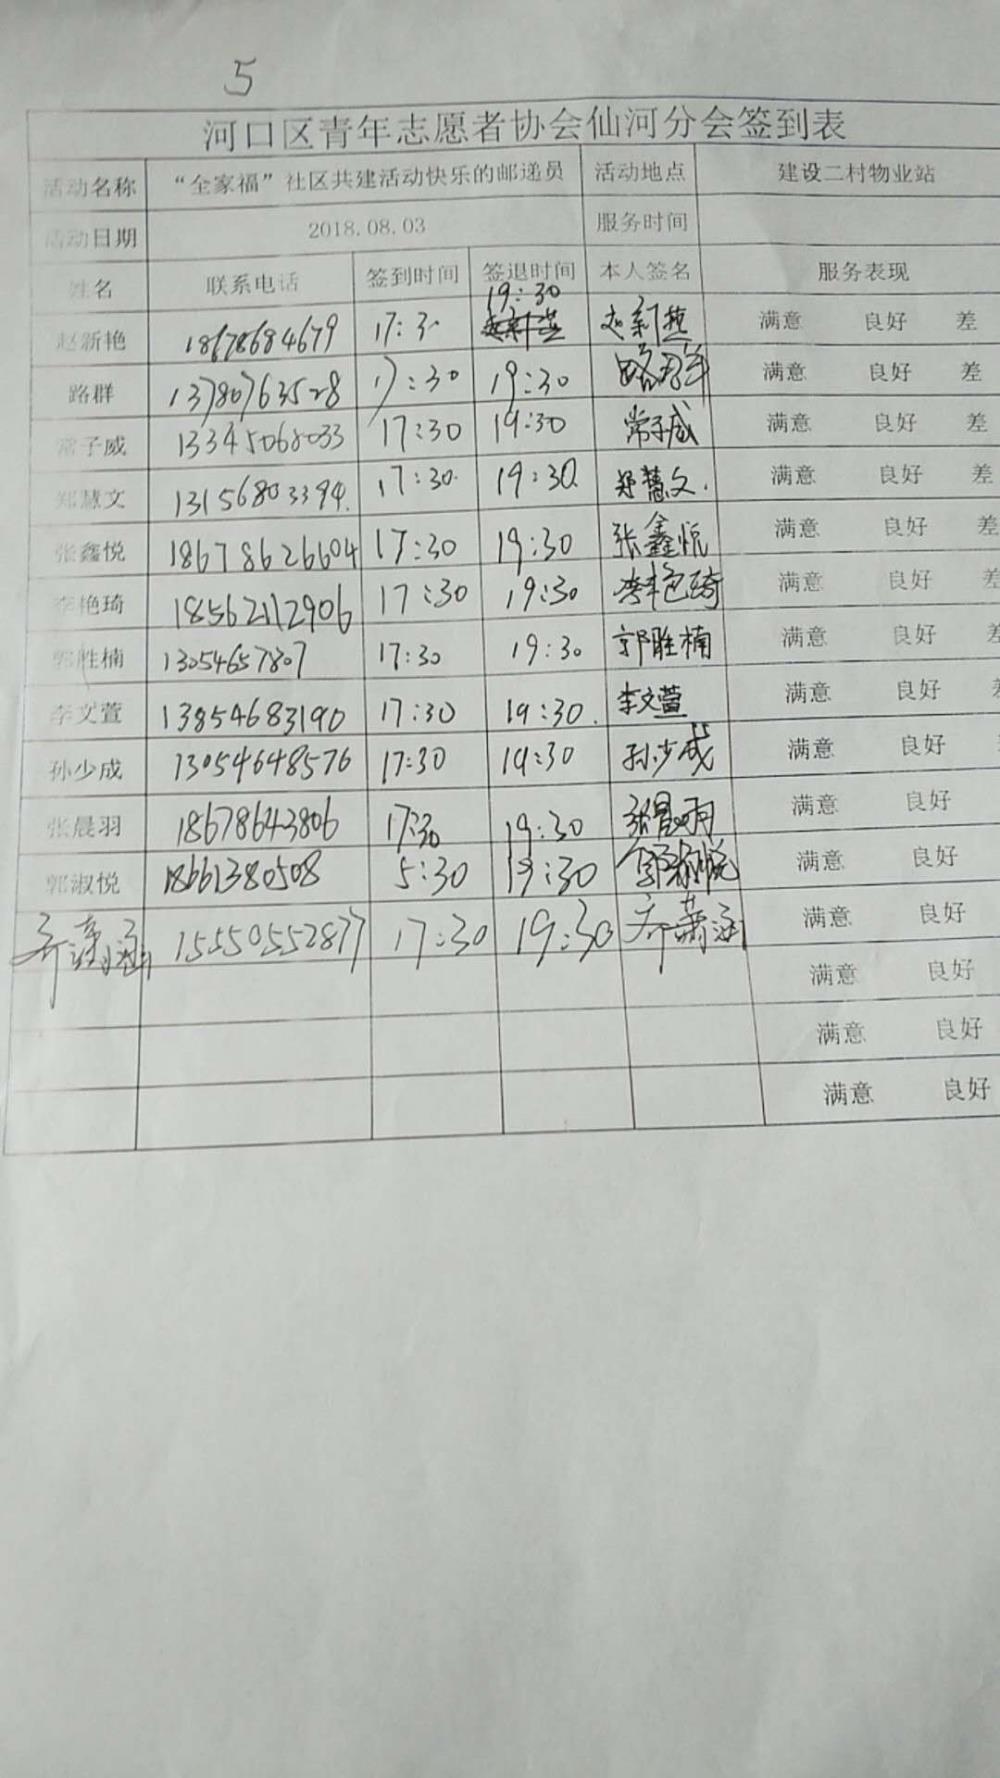 5
河口区青年志愿者协会仙河分会签到表
活动名称 “全家福”社区共建活动快乐的邮递员 活动地点 建设二村物业站
活动日期 2018.08.03 服务时间
姓名 联系电话 签到时间 签退时间 本人签名 服务表现
赵新艳 18678684679 17:3 19:30 赵新艳 满意 良好 差
路群 13780763528 17:30 19:30 路群 满意 良好 差
常子威 13345068033 17:30 19:30 常子威 满意 良好 差
郑慧文 13156803394. 17:30. 19:30. 郑慧文. 满意 良好 差
张鑫悦 18678626604 17:30 19:30 张鑫悦 满意 良好 差
李艳琦 18562112906 17:30 19:30 李艳琦 满意 良好 差
郭胜楠 13054657807 17:30 19:30 郭胜楠 满意 良好 差
李文萱 13854683190 17:30 19:30. 李文萱 满意 良好 差
孙少成 13054648576 17:30 19:30 孙少成 满意 良好
张晨羽 18678643806 17:30 19:30 张晨羽 满意 良好
郭淑悦 18661380508 5:30 19:30 郭淑悦 满意 良好
齐潇涵 15550552877 17:30 19:30 齐萧涵 满意 良好
满意 良好
满意 良好
满意 良好